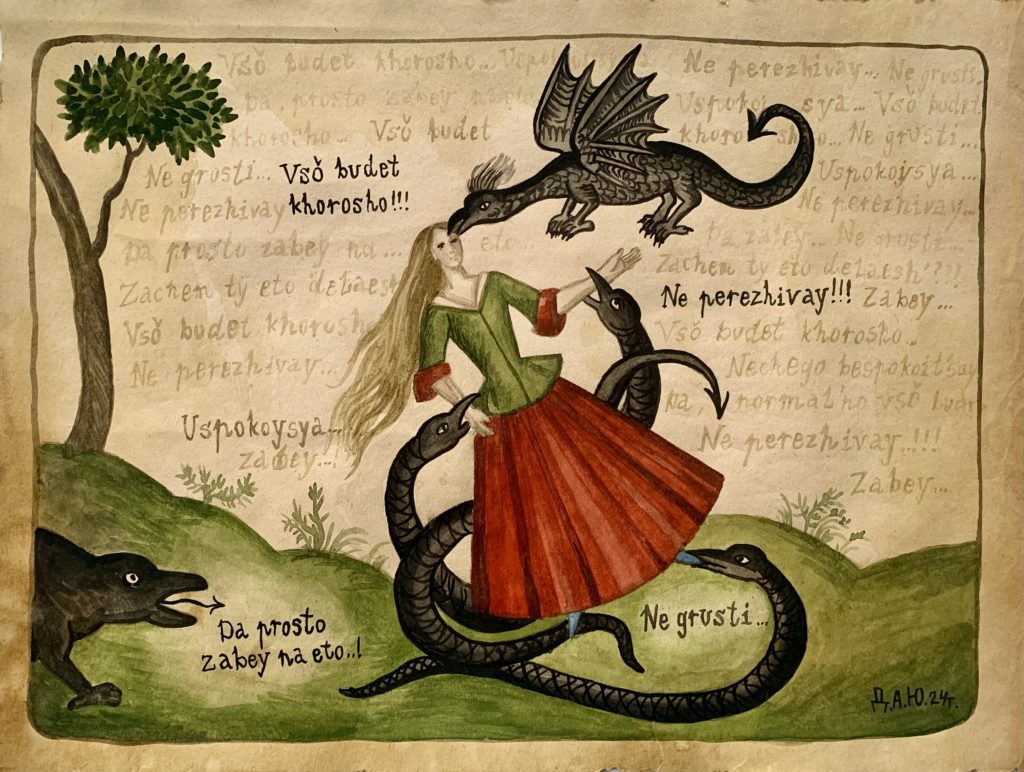 Vsŏ budet khorosho... Uspokoy
Ne perezhivay... Ne grusti
Da, prosto zabey na eto
Uspokoysya... Vsŏ budet
khorosho... Vsŏ budet
khorosho... Ne grusti...
Ne grusti...
Vsŏ budet
khorosho!!!
Uspokoysya...
Ne perezhivay
Ne perezhivay...
Da prosto zabey na... eto...
Da zabey... Ne grusti...
Zachem ty eto delaesh
Zachem ty eto delaesh'???
Ne perezhivay!!!
Zabey...
Vsŏ budet khorosho
Vsŏ budet khorosho...
Ne perezhivay...
Nechego bespokoit'sya
Da, normalno vsŏ budet
Uspokoysya...
zabey...!
Ne perezhivay...!!!
Zabey...
Da prosto
zabey na eto..!
Ne grusti...
Д.А.Ю.24г.